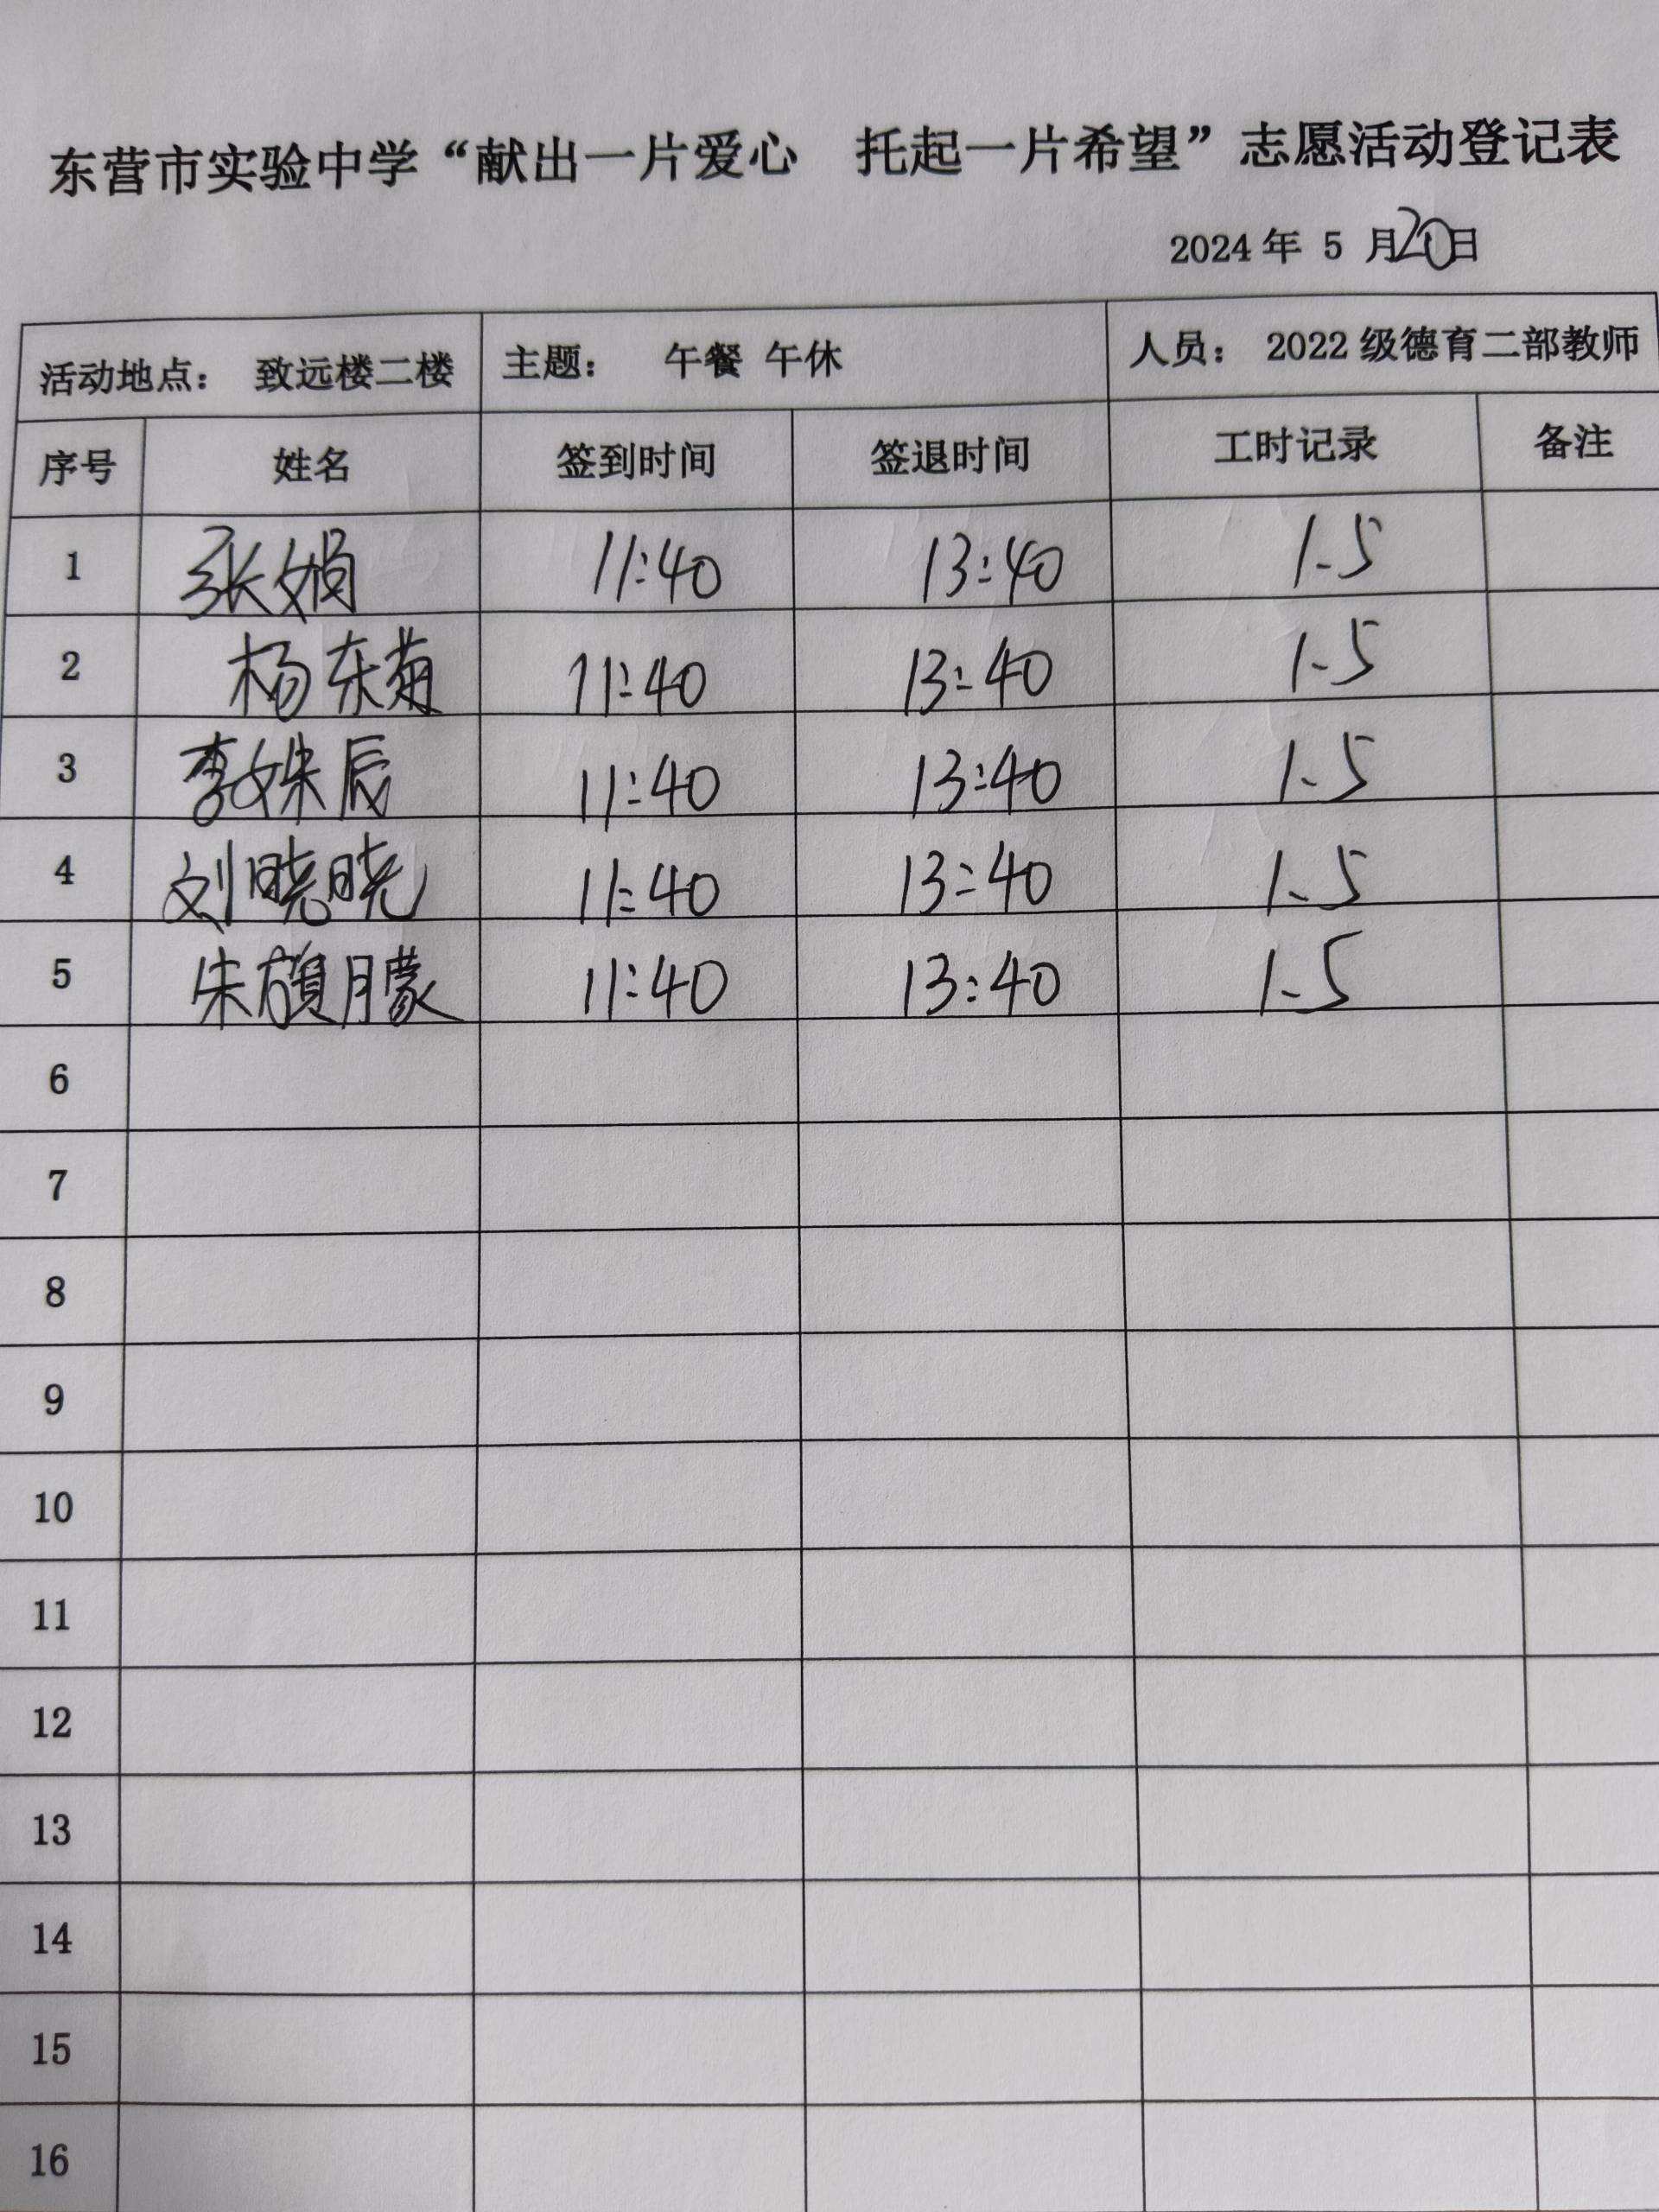 东营市实验中学“献出一片爱心 托起一片希望”志愿活动登记表
2024年 5 月20日
活动地点： 致远楼二楼 主题： 午餐 午休 人员： 2022级德育二部教师
序号 姓名 签到时间 签退时间 工时记录 备注
1 张娟 11:40 13:40 1.5
2 杨东菊 11:40 13:40 1.5
3 李姝辰 11:40 13:40 1.5
4 刘晓晓 11:40 13:40 1.5
5 朱 11:40 13:40 1.5
6
7
8
9
10
11
12
13
14
15
16